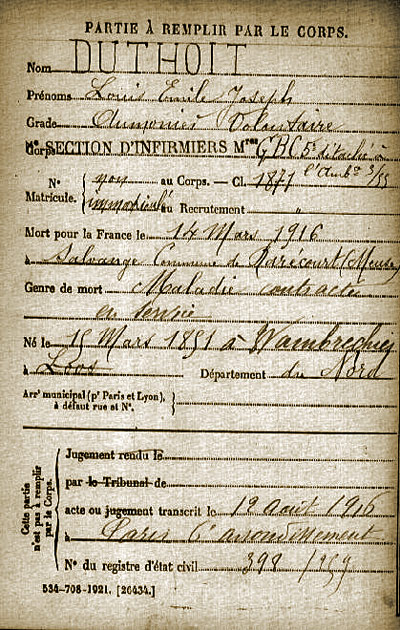 PARTIE À REMPLIR PAR LE CORPS.
Nom DUTHOIT
Prénoms Louis Emile Joseph
Grade Aumonier Volontaire
Corps SECTION D'INFIRMIERS Mres G.B.C. 5 détaché à
l'Amb ce 3/55
N° Matricule. { non au Corps. — Cl. 1871
immatriculé au Recrutement "
Mort pour la France le 14 Mars 1916
à Salvange Commune de Rarécourt (Meuse)
Genre de mort Maladie contractée
en service
Né le 15 Mars 1851 à Wambrechies
à Loos Département du Nord
Arrt municipal (pr Paris et Lyon), à défaut rue et N°.
Cette partie n'est pas à remplir par le Corps.
Jugement rendu le
par le Tribunal de
acte ou jugement transcrit le 12 août 1916
à Paris 6e arrondissement
N° du registre d'état civil 398
534-708-1921. [26434.]